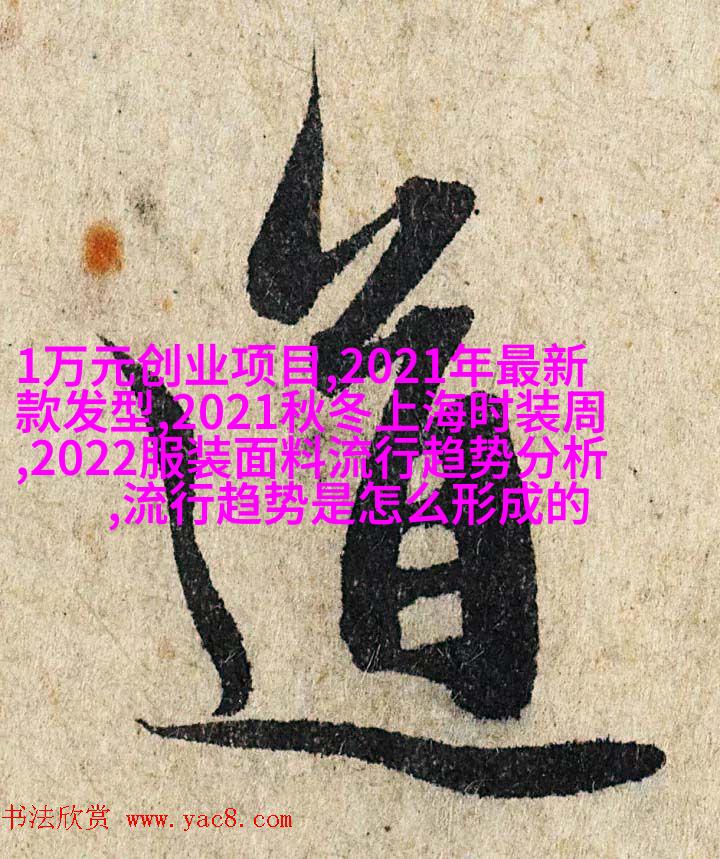 道
1万元创业项目,2021年最新
款发型,2021秋冬上海时装周
,2022服装面料流行趋势分析
,流行趋势是怎么形成的
书法欣赏 www.yac8.com